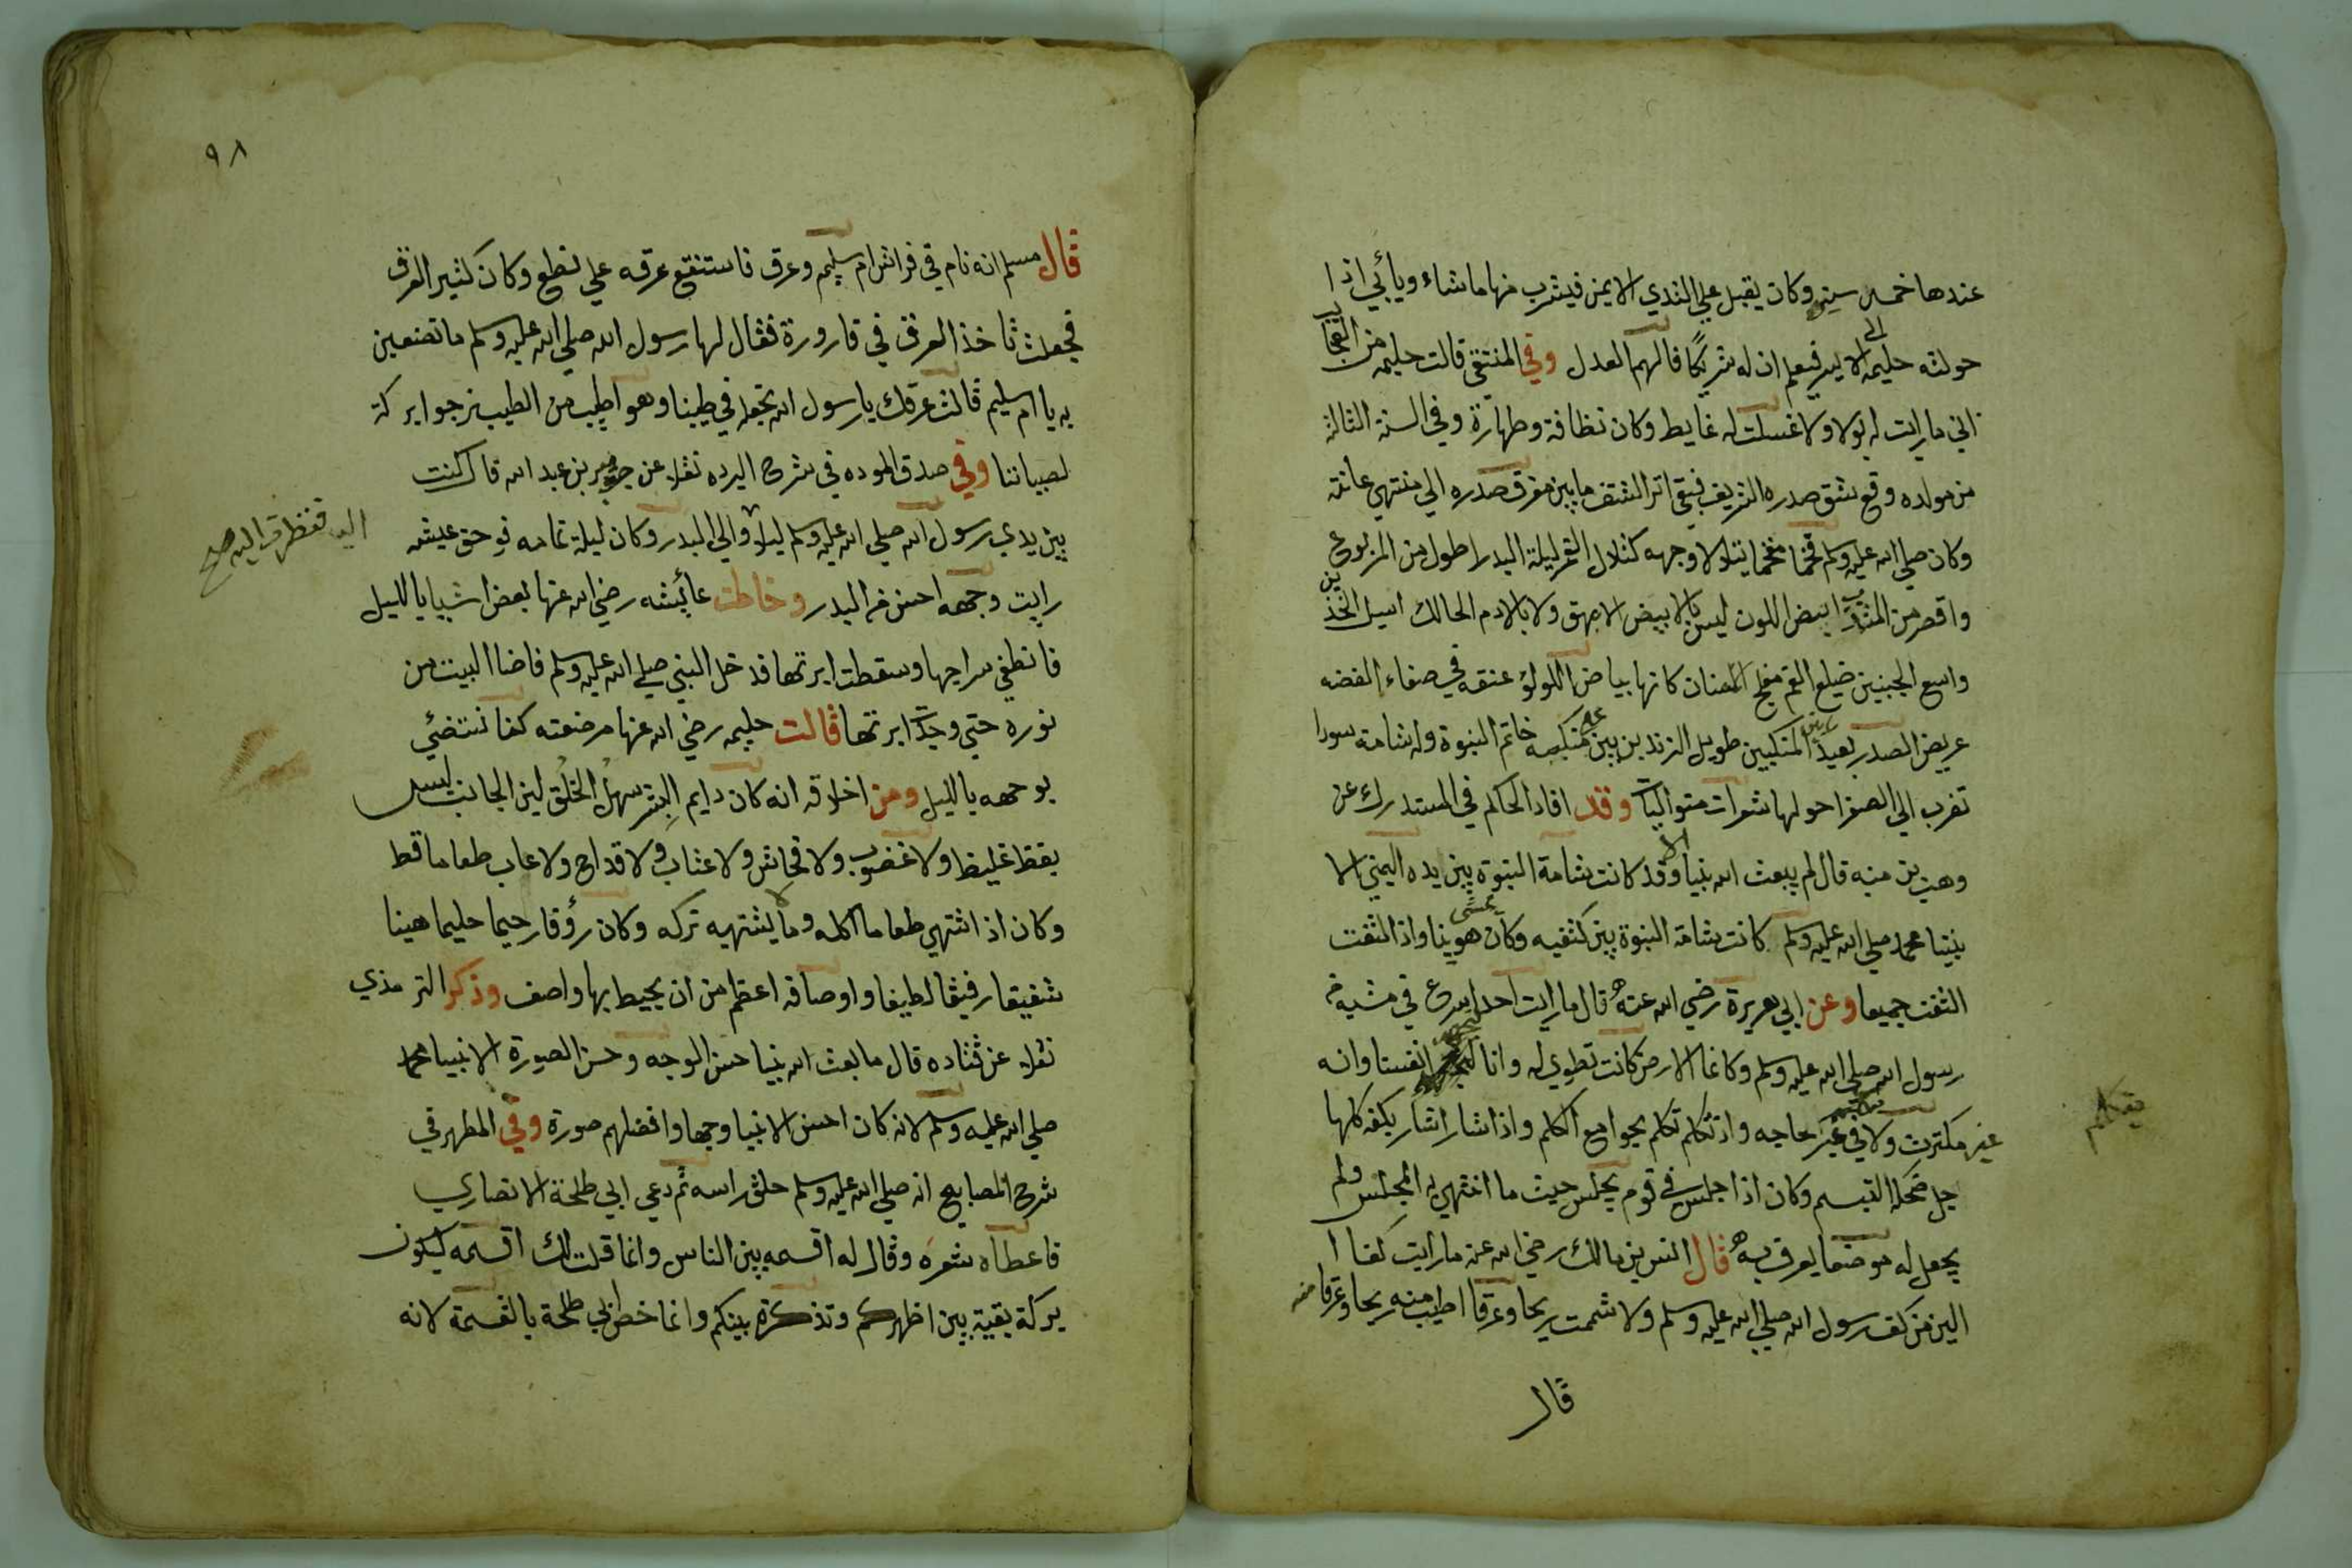 عندها خمس سنين وكان يقبل علي الثدي الايمن فيشرب منها ماشاء ويأبي اذا
حولته حليمه الي الايسر فيعلم ان له شريكا فالهم العدل وفي المنتقي قالت حليمه من العجايب
اني ما رايت له بولا ولا غسلت له غايط وكان نظافة وطهارة وفي السنة الثالثه
من مولده وقع شق صدره الشريف فبقي اثر الشق ما بين مفرق صدره الي منتهي عانته
وكان صلي الله عليه وسلم فخما مفخما يتلالا وجهه كتلال القمر ليلة البدر اطول من المربوع
واقصر من المشذب ابيض اللون ليس بالابيض الامهق ولا بالادم الحالك اسيل الخدين
واسع الجبين ضليع الفم مفلج الاسنان كانها بياض اللولؤ عنقه في صفاء الفضه
عريض الصدر بعيد ما بين المنكبين طويل الزندين بين منكبيه خاتم النبوة وله شامة سودا
تضرب الي الصفرا حولها شعرات متواليات وقد افاد الحاكم في المستدرك عن
وهب بن منبه قال لم يبعث الله نبيا الا وقد كانت شامة النبوة بين يده اليمني الا
نبينا محمد صلي الله عليه وسلم كانت شامة النبوة بين كتفيه وكان يمشي هوينا واذا التفت
التفت جميعا وعن ابي هريرة رضي الله عنه قال ما رايت احدا اسرع في مشيه من
رسول الله صلي الله عليه وسلم وكانما الارض كانت تطوي له وانا لنجهد انفسنا وانه
غير مكترث ولا في غير حاجه واذ تكلم تكلم بجوامع الكلم واذا شار اشار بكفه كلها
يتكلم
جل ضحكه التبسم وكان اذا جلس في قوم يجلس حيث ما انتهي به المجلس ولم
يجعل له موضعا يعرف به قال انس بن مالك رضي الله عنه ما رايت كفا ا
الين من كف رسول الله صلي الله عليه وسلم ولا شممت ريحا وعرقا اطيب منه ريحا وعرقا منه
قال
٩٨
قال مسلم انه نام في فراش ام سليم وعرق فاستنقع عرقه علي نطع وكان كثير العرق
فجعلت تاخذ العرق في قارورة فقال لها رسول الله صلي الله عليه وسلم ما تصنعين
به يا ام سليم قالت عرقك يا رسول الله نجعله في طيبنا وهو اطيب من الطيب نرجوا بركة
لصبياننا وفي صدق الموده في شرح البرده نقلا عن جرير بن عبد الله قال كنت
بين يدي رسول الله صلي الله عليه وسلم ليلا والي البدر وكان ليلة تمامه فو حق عيشه
اليه فنظرت اليه صح
رايت وجهه احسن من البدر وخاطت عائيشه رضي الله عنها بعض اشيايا بالليل
فانطفي سراجها وسقطت ابرتها فدخل النبي صلي الله عليه وسلم فاضا البيت من
نوره حتي وجدت ابرتها قالت حليمه رضي الله عنها مرضعته كنا نستضئي
بوجهه بالليل ومن اخلاقه انه كان دايم البشر سهل الخلق لين الجانب ليس
بفظ غليظ ولا غضوب ولا فحاش ولا عتاب ولا قداح ولا عاب طعاما قط
وكان اذا اشتهي طعاما اكله وما لا يشتهيه تركه وكان رؤفا رحيما حليما هينا
شفيقا رفيقا لطيفا واوصافه اعظم من ان يحيط بها واصف وذكر الترمذي
نقلا عن قتاده قال ما بعث الله نبيا حسن الوجه وحسن الصورة الا نبينا محمد
صلي الله عليه وسلم لانه كان احسن الانبيا وجها وافضلهم صورة وفي المظهر في
شرح المصابيح انه صلي الله عليه وسلم حلق راسه ثم دعي ابي طلحة الانصاري
فاعطاه شعره وقال له اقسمه بين الناس وانما قلت لك اقسمه ليكون
بركة بقية بين اظهركم وتذكرة بينكم وانما خص ابي طلحة بالقسمة لانه